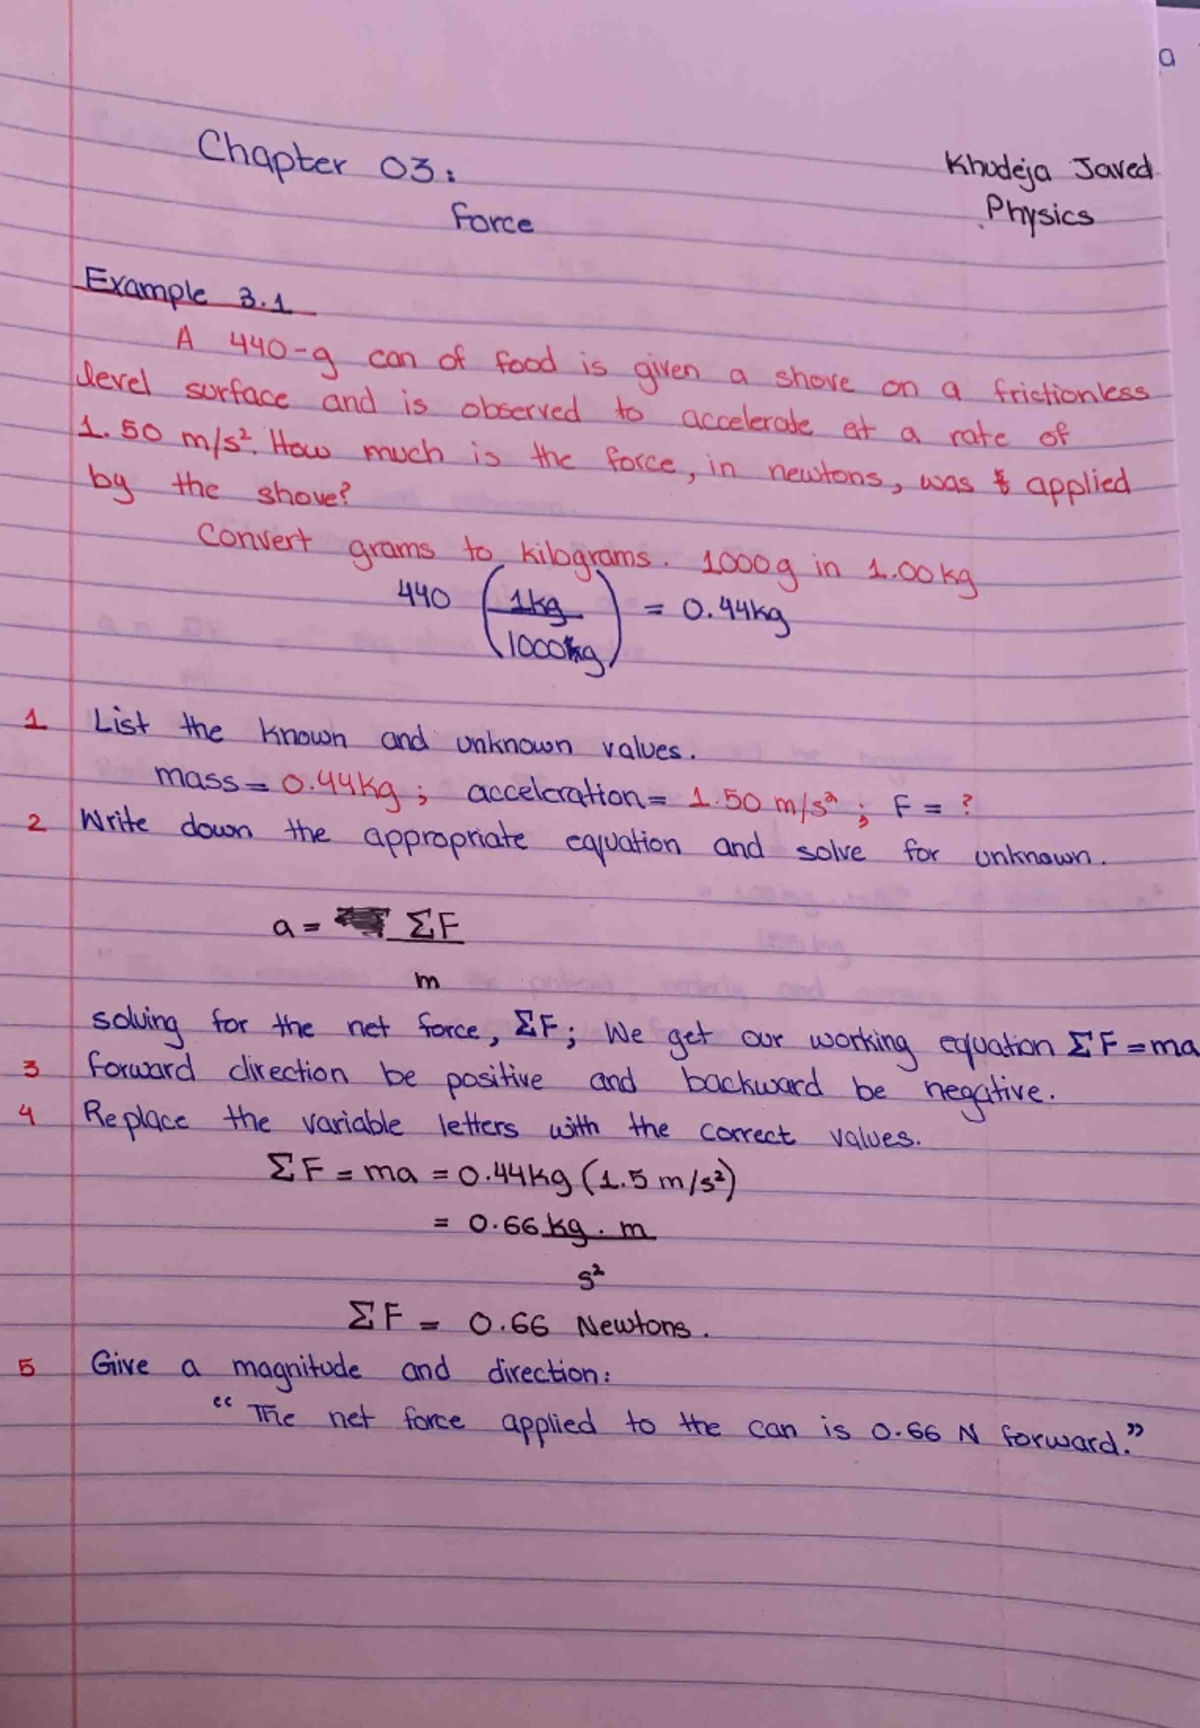 a
Chapter 03:
Force
Khudeja Javed
Physics
Example 3.1
A 440-g can of food is given a shove on a frictionless
level surface and is observed to accelerate at a rate of
1.50 m/s². How much is the force, in newtons, was applied
by the shove?
Convert grams to kilograms. 1000g in 1.00kg
440 (1kg / 1000g) = 0.44kg
1 List the known and unknown values.
mass = 0.44kg ; acceleration = 1.50 m/s² ; F = ?
2 Write down the appropriate equation and solve for unknown.
a = ΣF
m
solving for the net force, ΣF; We get our working equation ΣF = ma
3 forward direction be positive and backward be negative.
4 Replace the variable letters with the correct values.
ΣF = ma = 0.44kg (1.5 m/s²)
= 0.66 kg . m
s²
ΣF = 0.66 Newtons.
5 Give a magnitude and direction:
“ The net force applied to the can is 0.66 N forward.”